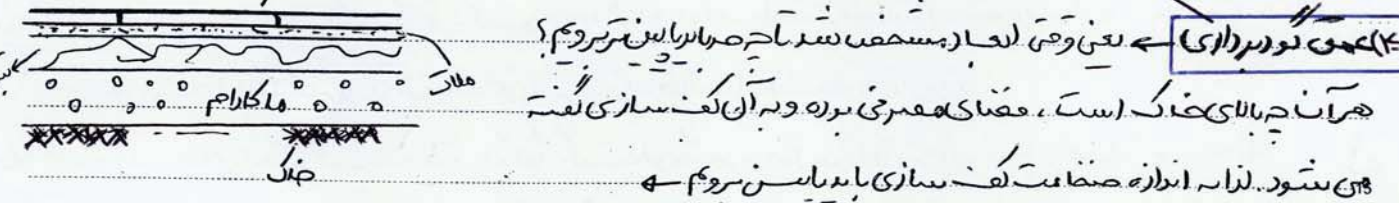 ۲) عمق گودبرداری ← یعنی وقتی ابعاد مشخص شد تا چه حد باید پایین تر برویم؟
هر آنچه بالای خاک است، فضای مصرفی بوده و به آن کف سازی گفته
می شود. لذا به اندازه ضخامت کف سازی باید پایین برویم ←
ملات
ماکادام
خاک